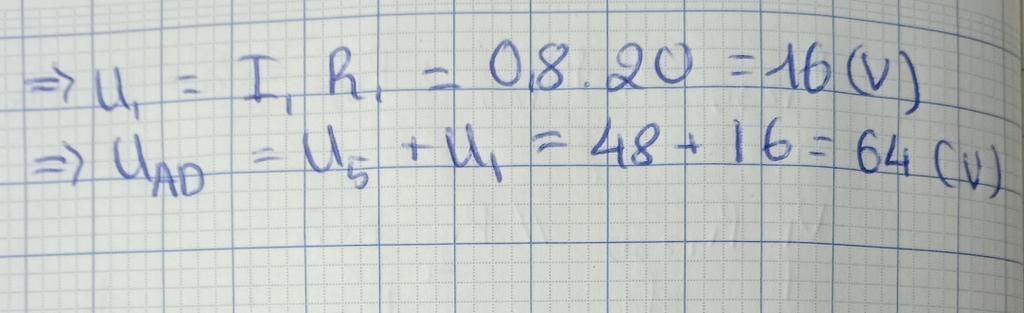 => U₁ = I₁ R₁ = 0,8 . 20 = 16 (V)
=> U_AD = U₅ + U₁ = 48 + 16 = 64 (V)